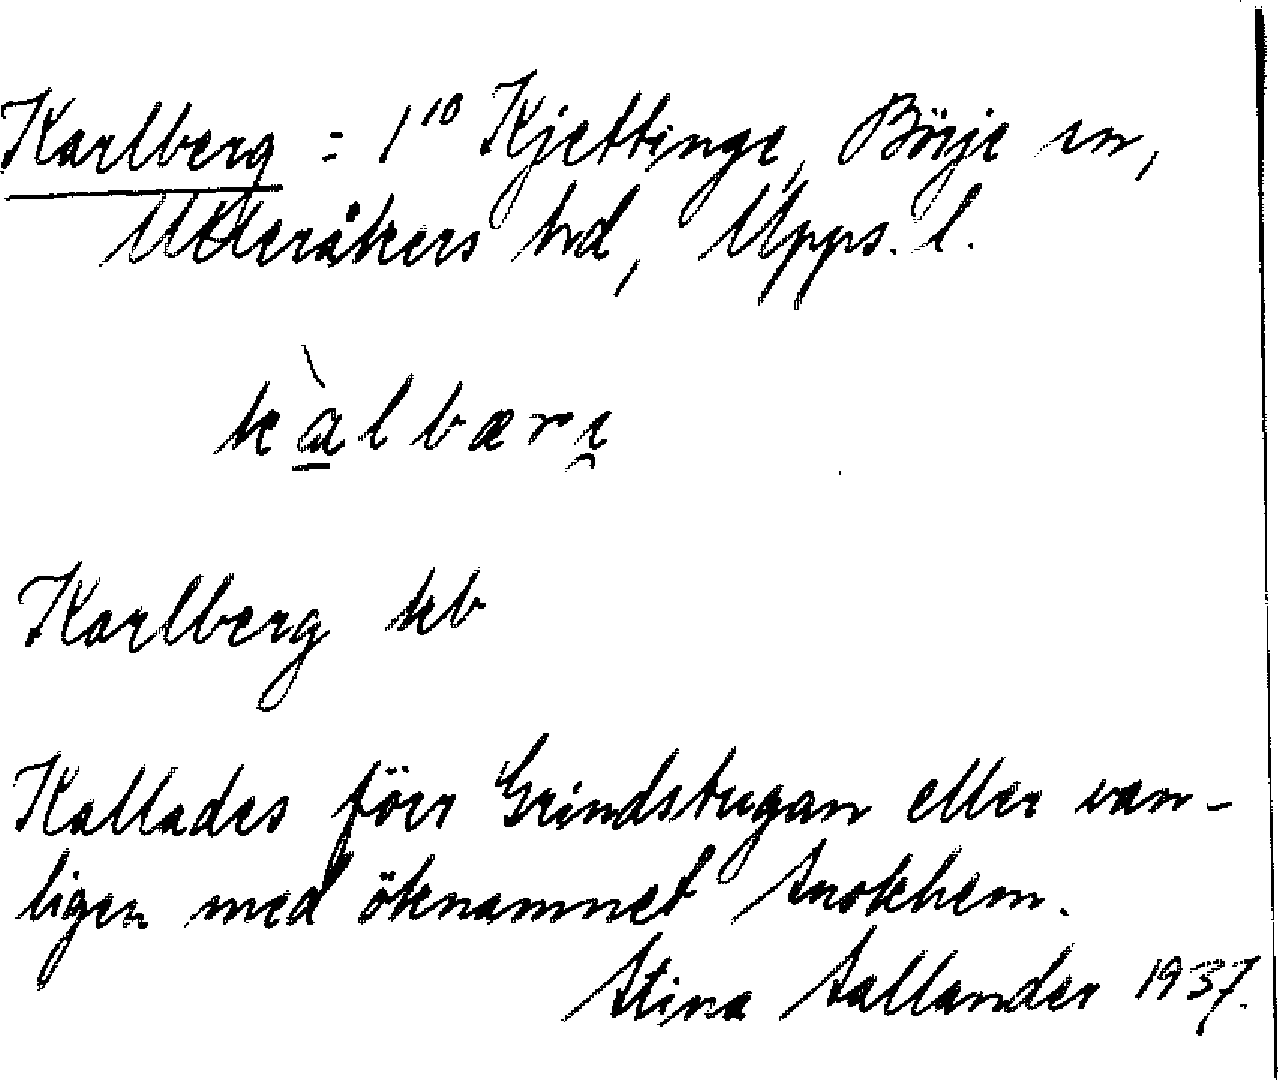 Karlberg = 1¹⁰ Kjettinge, Börje sn,
Ulleråkers hd, Upps. l.
kàlbæri̯
Karlberg kb
Kallades förr Grindstugan eller van-
ligen med öknamnet Snokhem.
Stina Sallander 1937.